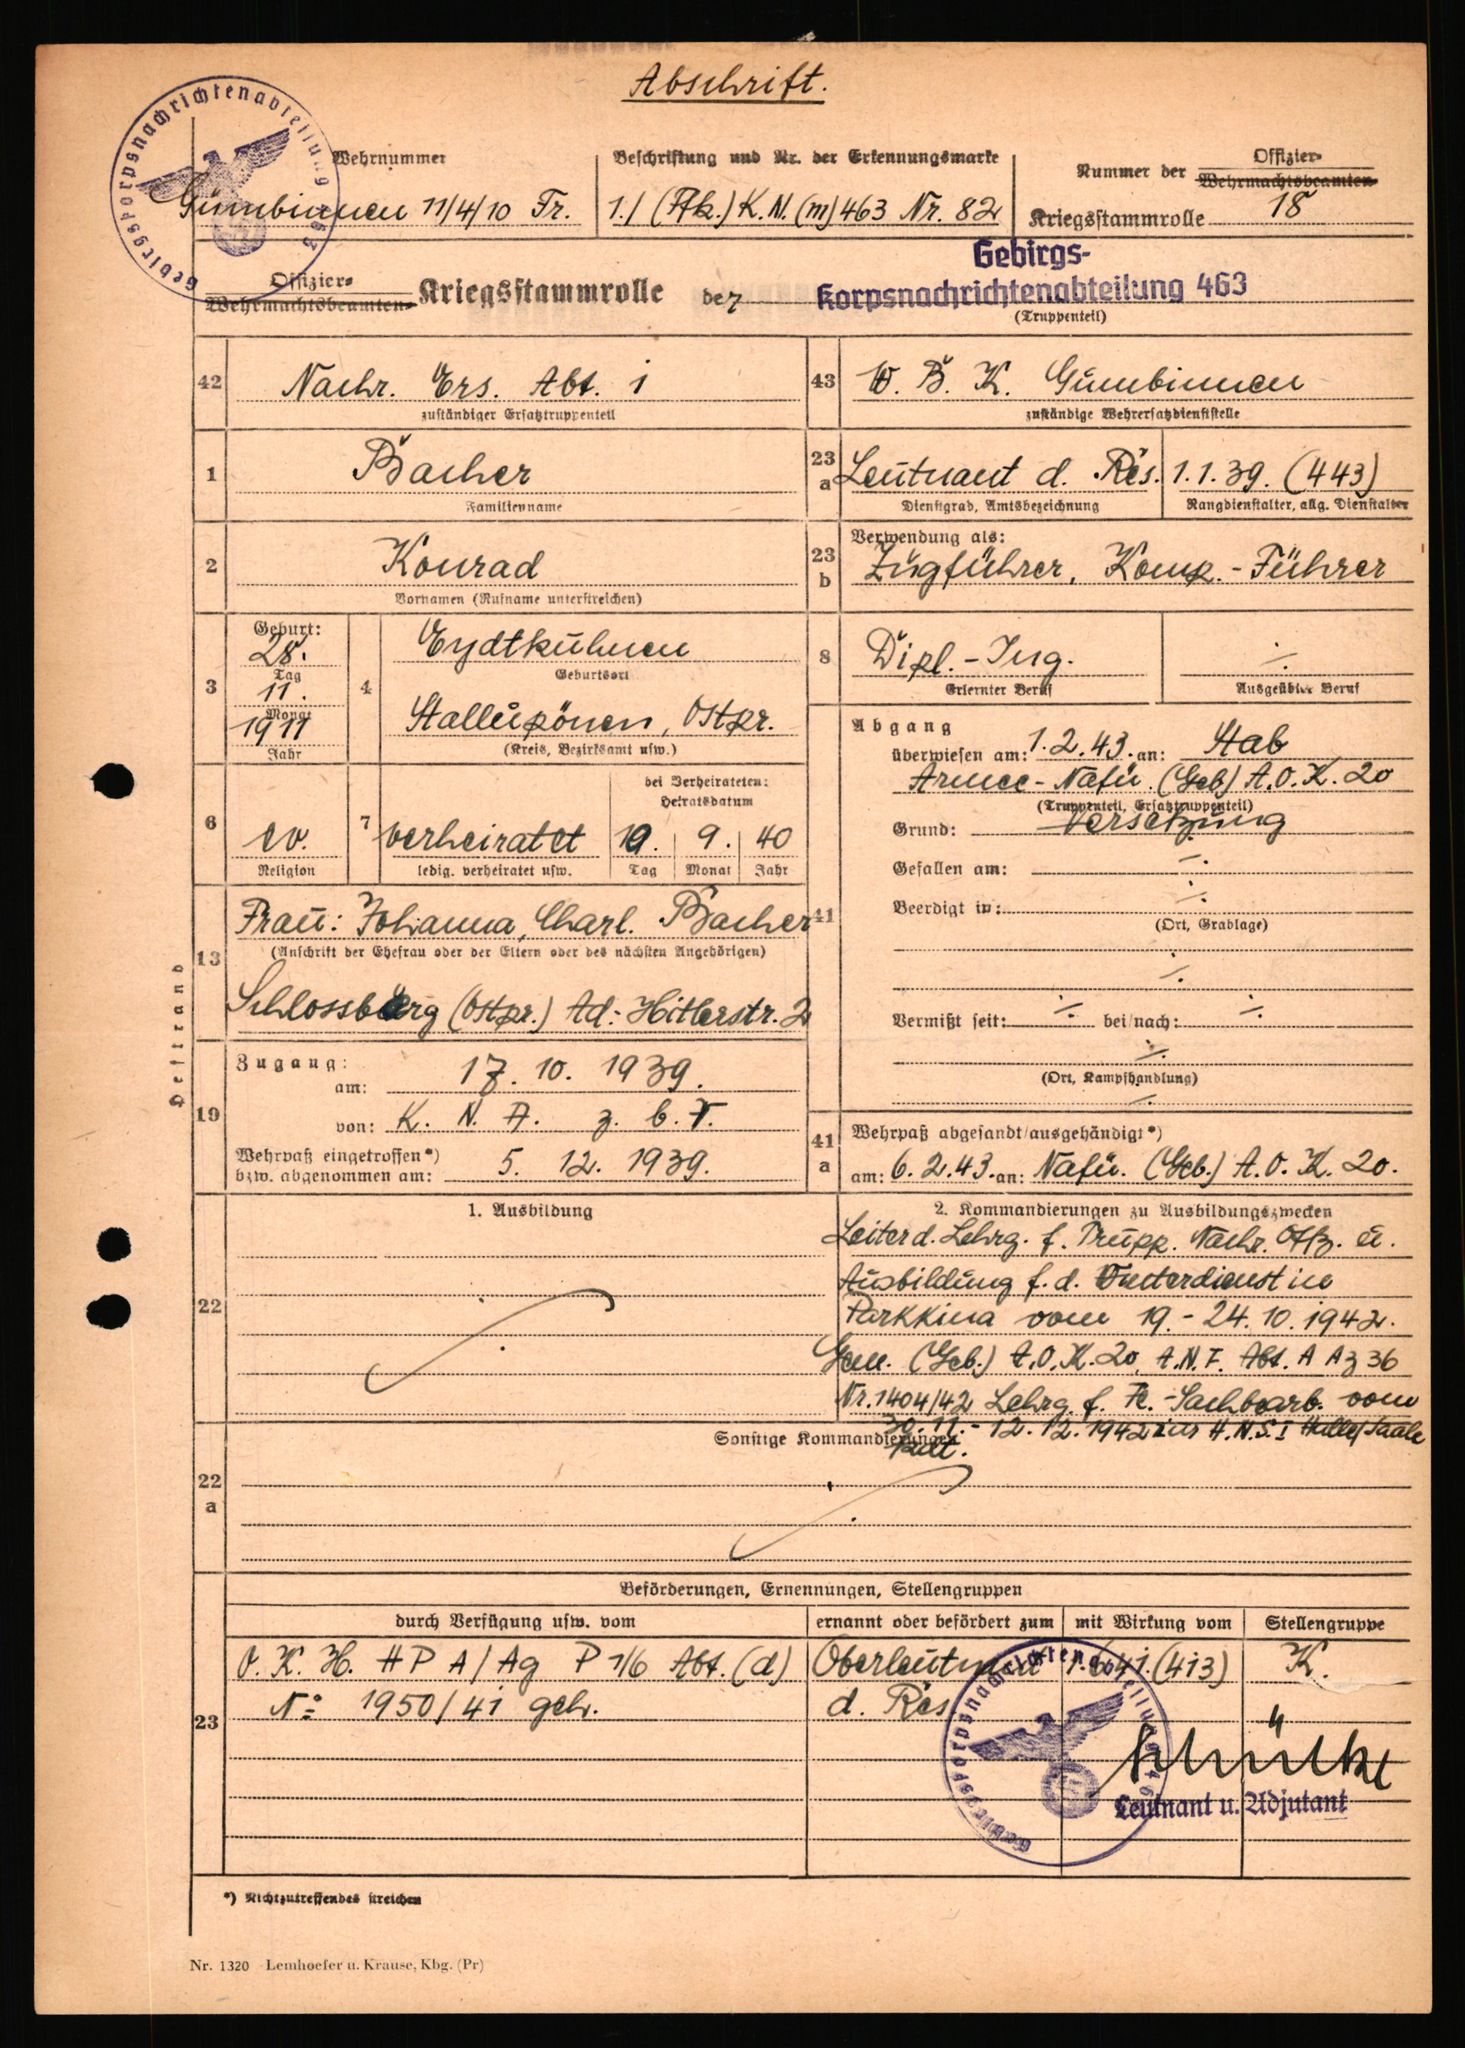 Abschrift.
Gebirgskorpsnachrichtenabteilung 463
Wehrnummer
Gumbinnen 11/4/10 Fr.
Beschriftung und Nr. der Erkennungsmarke
1./(Fk.) K.N.(m) 463 Nr. 82
Nummer der Offizier-
Wehrmachtsbeamten-
Kriegsstammrolle 18
Offizier-
Wehrmachtsbeamten- Kriegsstammrolle der
Gebirgs-
Korpsnachrichtenabteilung 463
(Truppenteil)
42 Nachr. Ers. Abt. 1
zuständiger Ersatztruppenteil
43 W. B. K. Gumbinnen
zuständige Wehrersatzdienststelle
1 Bacher
Familienname
23 a Leutnant d. Res. 1.1.39. (443)
Dienstgrad, Amtsbezeichnung Rangdienstalter, allg. Dienstalter
2 Konrad
Vornamen (Rufname unterstreichen)
23 b Verwendung als:
Zugführer, Komp.-Führer
3 Geburt:
28.
Tag
11.
Monat
1911
Jahr
4 Eydtkuhnen
Geburtsort
Stallupönen, Ostpr.
(Kreis, Bezirksamt usw.)
8 Dipl.-Ing. ./.
Erlernter Beruf Ausgeübter Beruf
6 ev.
Religion
7 verheiratet
ledig, verheiratet usw.
bei Verheirateten:
Heiratsdatum
19. 9. 40
Tag Monat Jahr
41 Abgang
überwiesen am: 1.2.43. an: Stab
Armee-Nafü. (Geb) A.O.K. 20
(Truppenteil, Ersatztruppenteil)
Grund: Versetzung
Gefallen am: ./.
Beerdigt in: ./.
(Ort, Grablage)
./.
Vermißt seit: ./. bei/nach: ./.
./.
(Ort, Kampfhandlung)
./.
Heftrand
13 Frau: Johanna, Charl. Bacher
(Anschrift der Ehefrau oder der Eltern oder des nächsten Angehörigen)
Schlossberg (Ostpr.) Ad.-Hitlerstr. 2
19 Zugang:
am: 17. 10. 1939.
von: K. N. A. z. b. V.
Wehrpaß eingetroffen*)
bzw. abgenommen am: 5. 12. 1939.
41 a Wehrpaß abgesandt/ausgehändigt*)
am: 6.2.43. an: Nafü. (Geb.) A.O.K. 20.
22 1. Ausbildung
2. Kommandierungen zu Ausbildungszwecken
Leiter d. Lehrg. f. Trupp. Nachr. Offz. u.
Ausbildung f. d. Unterdienst in
Parkkina vom 19.-24.10.1942.
Gem. (Geb.) A.O.K. 20, A.N.F. Abt. A Az 36
Nr. 1404/42 Lehrg. f. Fe.-Sachbearb. vom
30.11.-12.12.1942 zur H.N.S. I Halle/Saale
kdt.
22 a Sonstige Kommandierungen
23 Beförderungen, Ernennungen, Stellengruppen
durch Verfügung usw. vom ernannt oder befördert zum mit Wirkung vom Stellengruppe
O. K. H. H P A / Ag P 1/6 Abt. (d) Oberleutnant 1.6.41. (413) K.
No 1950/41 geh. d. Res.
Gebirgskorpsnachrichtenabteilung 463
Leutnant u. Adjutant
*) Nichtzutreffendes streichen
Nr. 1320 Lemhoefer u. Krause, Kbg. (Pr)